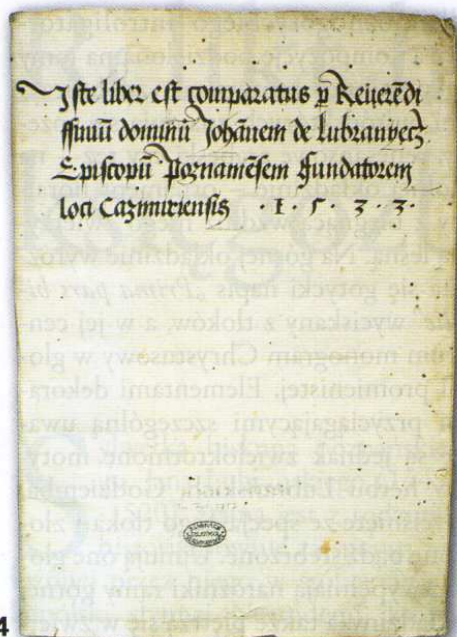 Iste liber est comparatus p Reuerēdi
ssimū dominū Johānem de lubranyecz
Episcopū Poznaniēsem fundatorem
loci Cazimiriensis · 1 · 5 · 3 · 3 ·
4